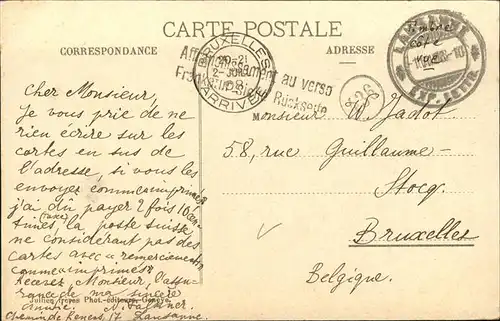 CARTE POSTALE
CORRESPONDANCE
ADRESSE
Timbre
côté
vue
LAUSANNE 1
EXP. LETTR.
BRUXELLES
ARRIVÉE
Affranchissement au verso
Frankatur siehe Rückseite
326
Cher Monsieur,
Je vous prie de ne
rien écrire sur les
cartes en sus de
l'adresse, si vous les
envoyez comme imprimés
j'ai dû payer 2 fois 10 cen-
(taxe)
times, la poste suisse
ne considérant pas des
cartes avec « remerciements
comme imprimés.
Recevez, Monsieur, l'assu-
rance de ma sincère
amitié.
Chemin de Renens, 17 Lausanne.
Jullien frères Phot.-éditeurs, Genève
Monsieur W. Jadot
58, rue Guillaume-
Stocq.
Bruxelles
Belgique.